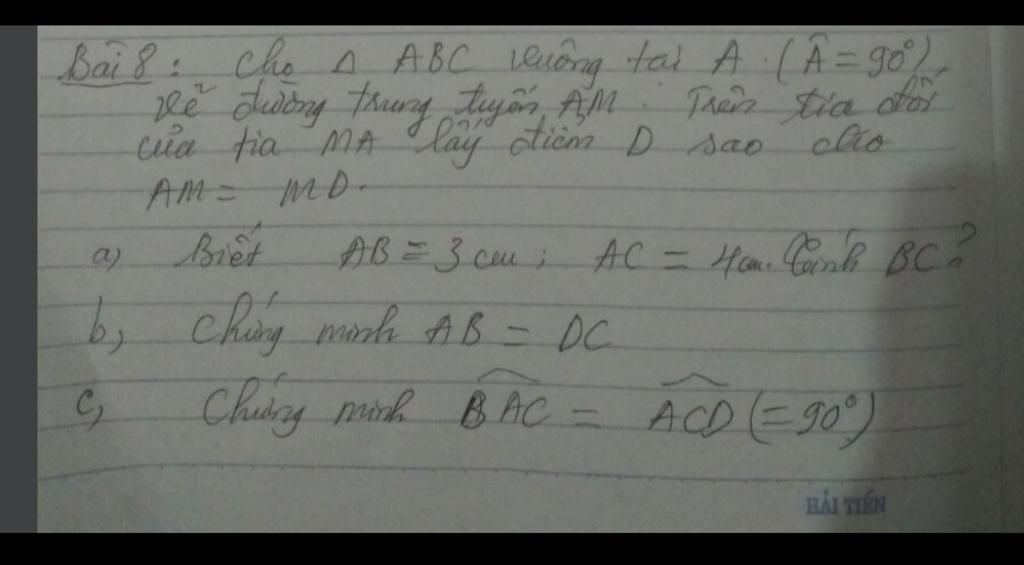 Bài 8: Cho Δ ABC vuông tại A. (Â = 90°),
vẽ đường trung tuyến AM. Trên tia đối
của tia MA lấy điểm D sao cho
AM = MD.
a) Biết AB = 3 cm; AC = 4 cm. Tính BC?
b, Chứng minh AB = DC
c, Chứng minh \widehat{BAC} = \widehat{ACD} (= 90°)
HẢI TIẾN